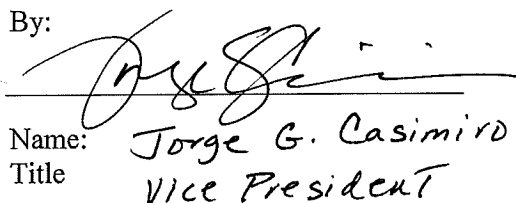 By:
Name: Jorge G. Casimiro
Title Vice President